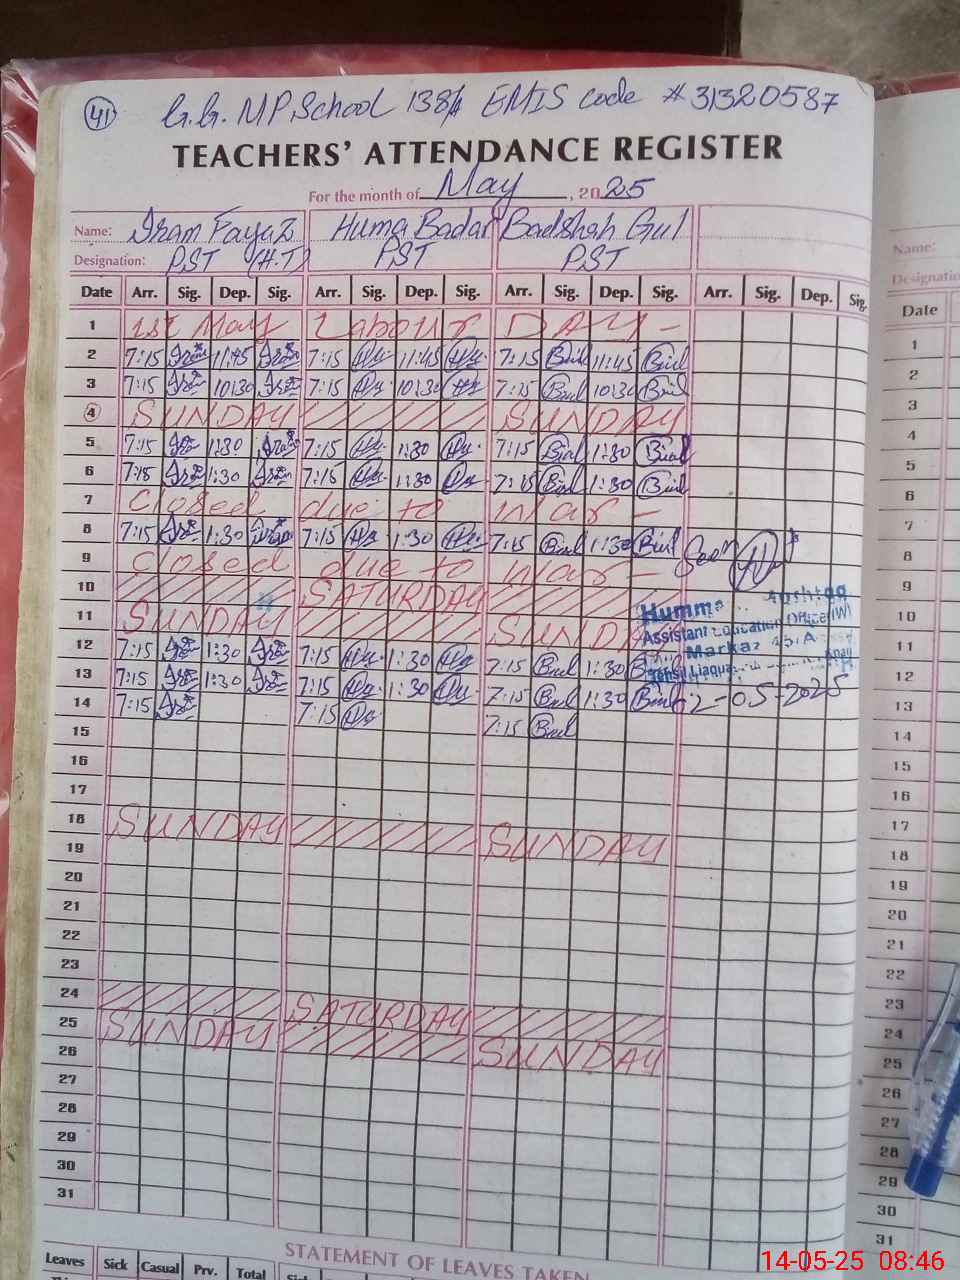 41 G.G. MP School 138/ EMIS code # 31320587
TEACHERS' ATTENDANCE REGISTER
For the month of May, 2025
Name: Iram Fayaz Huma Badar Badshah Gul
Designation: PST (H.T) PST PST
Date Arr. Sig. Dep. Sig. Arr. Sig. Dep. Sig. Arr. Sig. Dep. Sig. Arr. Sig. Dep. Sig.
1 1st May Labour DAY -
2 7:15 Iram 11:45 Iram 7:15 11:45 7:15 11:45
3 7:15 10:30 7:15 10:30 7:15 10:30
4 SUNDAY SUNDAY
5 7:15 1:30 7:15 1:30 7:15 1:30
6 7:15 1:30 7:15 1:30 7:15 1:30
7 Closed due to war -
8 7:15 1:30 7:15 1:30 7:15 1:30 Seen
9 Closed due to war -
10 SATURDAY
11 SUNDAY SUNDAY
Humma
Assistant Education Officer (W)
Markaz
Tehsil Liaquat
12 7:15 1:30 7:15 1:30 7:15 1:30
13 7:15 1:30 7:15 1:30 7:15 1:30 -05-2025
14 7:15 7:15 7:15
15
16
17
18 SUNDAY SUNDAY
19
20
21
22
23
24 SATURDAY
25 SUNDAY SUNDAY
26
27
28
29
30
31
STATEMENT OF LEAVES TAKEN
Leaves Sick Casual Prv. Total
Name:
Date
1
2
3
4
5
6
7
8
9
10
11
12
13
14
15
16
17
18
19
20
21
22
23
24
25
26
27
28
29
30
31
14-05-25 08:46